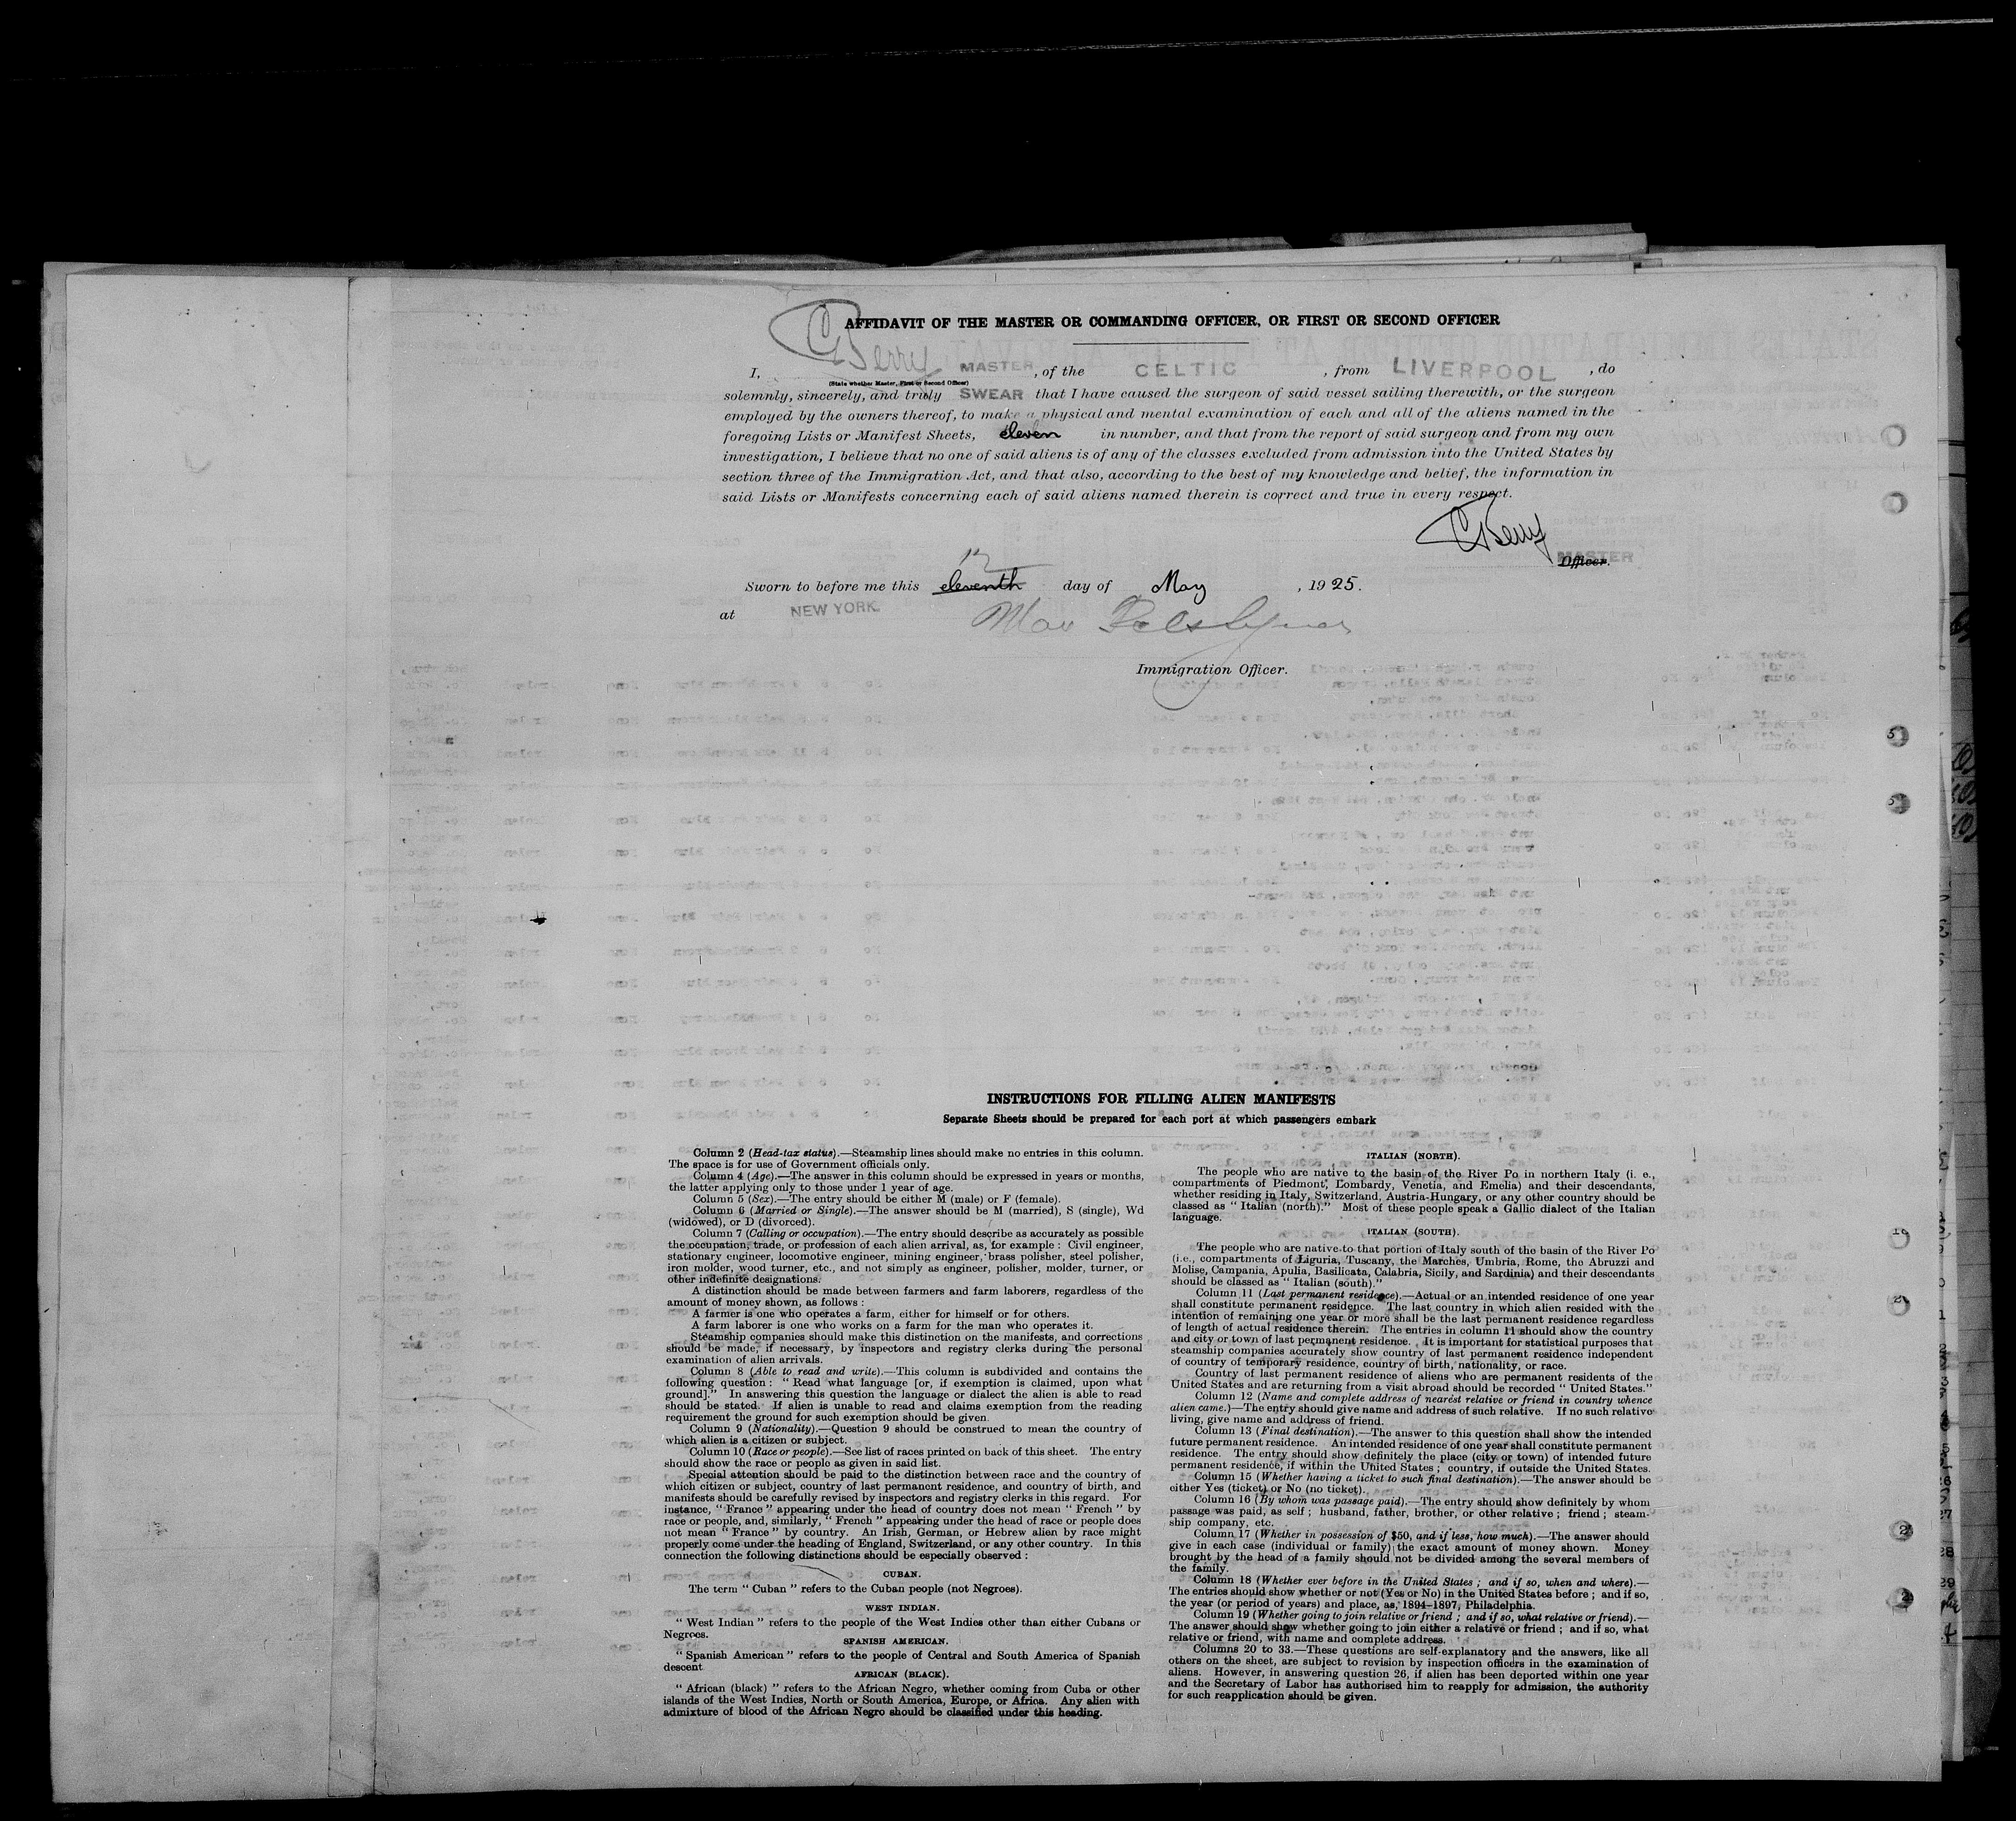 AFFIDAVIT OF THE MASTER OR COMMANDING OFFICER, OR FIRST OR SECOND OFFICER
I, C Berry MASTER, of the CELTIC, from LIVERPOOL, do
(State whether Master, First or Second Officer)
solemnly, sincerely, and truly SWEAR that I have caused the surgeon of said vessel sailing therewith, or the surgeon
employed by the owners thereof, to make a physical and mental examination of each and all of the aliens named in the
foregoing Lists or Manifest Sheets, eleven in number, and that from the report of said surgeon and from my own
investigation, I believe that no one of said aliens is of any of the classes excluded from admission into the United States by
section three of the Immigration Act, and that also, according to the best of my knowledge and belief, the information in
said Lists or Manifests concerning each of said aliens named therein is correct and true in every respect.
C Berry
MASTER
Officer.
12
Sworn to before me this eleventh day of May, 1925.
at NEW YORK. Max
Immigration Officer.
INSTRUCTIONS FOR FILLING ALIEN MANIFESTS
Separate Sheets should be prepared for each port at which passengers embark
Column 2 (Head-tax status).—Steamship lines should make no entries in this column.
The space is for use of Government officials only.
Column 4 (Age).—The answer in this column should be expressed in years or months,
the latter applying only to those under 1 year of age.
Column 5 (Sex).—The entry should be either M (male) or F (female).
Column 6 (Married or Single).—The answer should be M (married), S (single), Wd
(widowed), or D (divorced).
Column 7 (Calling or occupation).—The entry should describe as accurately as possible
the occupation, trade, or profession of each alien arrival, as, for example : Civil engineer,
stationary engineer, locomotive engineer, mining engineer, brass polisher, steel polisher,
iron molder, wood turner, etc., and not simply as engineer, polisher, molder, turner, or
other indefinite designations.
A distinction should be made between farmers and farm laborers, regardless of the
amount of money shown, as follows :
A farmer is one who operates a farm, either for himself or for others.
A farm laborer is one who works on a farm for the man who operates it.
Steamship companies should make this distinction on the manifests, and corrections
should be made, if necessary, by inspectors and registry clerks during the personal
examination of alien arrivals.
Column 8 (Able to read and write).—This column is subdivided and contains the
following question : “ Read what language [or, if exemption is claimed, upon what
ground].” In answering this question the language or dialect the alien is able to read
should be stated. If alien is unable to read and claims exemption from the reading
requirement the ground for such exemption should be given.
Column 9 (Nationality).—Question 9 should be construed to mean the country of
which alien is a citizen or subject.
Column 10 (Race or people).—See list of races printed on back of this sheet. The entry
should show the race or people as given in said list.
Special attention should be paid to the distinction between race and the country of
which citizen or subject, country of last permanent residence, and country of birth, and
manifests should be carefully revised by inspectors and registry clerks in this regard. For
instance, “ France ” appearing under the head of country does not mean “ French ” by
race or people, and, similarly, “ French ” appearing under the head of race or people does
not mean “ France ” by country. An Irish, German, or Hebrew alien by race might
properly come under the heading of England, Switzerland, or any other country. In this
connection the following distinctions should be especially observed :
CUBAN.
The term “ Cuban ” refers to the Cuban people (not Negroes).
WEST INDIAN.
“ West Indian ” refers to the people of the West Indies other than either Cubans or
Negroes.
SPANISH AMERICAN.
“ Spanish American ” refers to the people of Central and South America of Spanish
descent
AFRICAN (BLACK).
“ African (black) ” refers to the African Negro, whether coming from Cuba or other
islands of the West Indies, North or South America, Europe, or Africa. Any alien with
admixture of blood of the African Negro should be classified under this heading.
ITALIAN (NORTH).
The people who are native to the basin of the River Po in northern Italy (i. e.,
compartments of Piedmont, Lombardy, Venetia, and Emelia) and their descendants,
whether residing in Italy, Switzerland, Austria-Hungary, or any other country should be
classed as “ Italian (north).” Most of these people speak a Gallic dialect of the Italian
language.
ITALIAN (SOUTH).
The people who are native to that portion of Italy south of the basin of the River Po
(i.e., compartments of Liguria, Tuscany, the Marches, Umbria, Rome, the Abruzzi and
Molise, Campania, Apulia, Basilicata, Calabria, Sicily, and Sardinia) and their descendants
should be classed as “ Italian (south).”
Column 11 (Last permanent residence).—Actual or an intended residence of one year
shall constitute permanent residence. The last country in which alien resided with the
intention of remaining one year or more shall be the last permanent residence regardless
of length of actual residence therein. The entries in column 11 should show the country
and city or town of last permanent residence. It is important for statistical purposes that
steamship companies accurately show country of last permanent residence independent
of country of temporary residence, country of birth, nationality, or race.
Country of last permanent residence of aliens who are permanent residents of the
United States and are returning from a visit abroad should be recorded “ United States.”
Column 12 (Name and complete address of nearest relative or friend in country whence
alien came.)—The entry should give name and address of such relative. If no such relative
living, give name and address of friend.
Column 13 (Final destination).—The answer to this question shall show the intended
future permanent residence. An intended residence of one year shall constitute permanent
residence. The entry should show definitely the place (city or town) of intended future
permanent residence, if within the United States ; country, if outside the United States.
Column 15 (Whether having a ticket to such final destination).—The answer should be
either Yes (ticket) or No (no ticket).
Column 16 (By whom was passage paid).—The entry should show definitely by whom
passage was paid, as self ; husband, father, brother, or other relative ; friend ; steam-
ship company, etc.
Column 17 (Whether in possession of $50, and if less, how much).—The answer should
give in each case (individual or family) the exact amount of money shown. Money
brought by the head of a family should not be divided among the several members of
the family.
Column 18 (Whether ever before in the United States ; and if so, when and where).—
The entries should show whether or not (Yes or No) in the United States before ; and if so,
the year (or period of years) and place, as, 1894–1897, Philadelphia.
Column 19 (Whether going to join relative or friend ; and if so, what relative or friend).—
The answer should show whether going to join either a relative or friend ; and if so, what
relative or friend, with name and complete address.
Columns 20 to 33.—These questions are self-explanatory and the answers, like all
others on the sheet, are subject to revision by inspection officers in the examination of
aliens. However, in answering question 26, if alien has been deported within one year
and the Secretary of Labor has authorised him to reapply for admission, the authority
for such reapplication should be given.